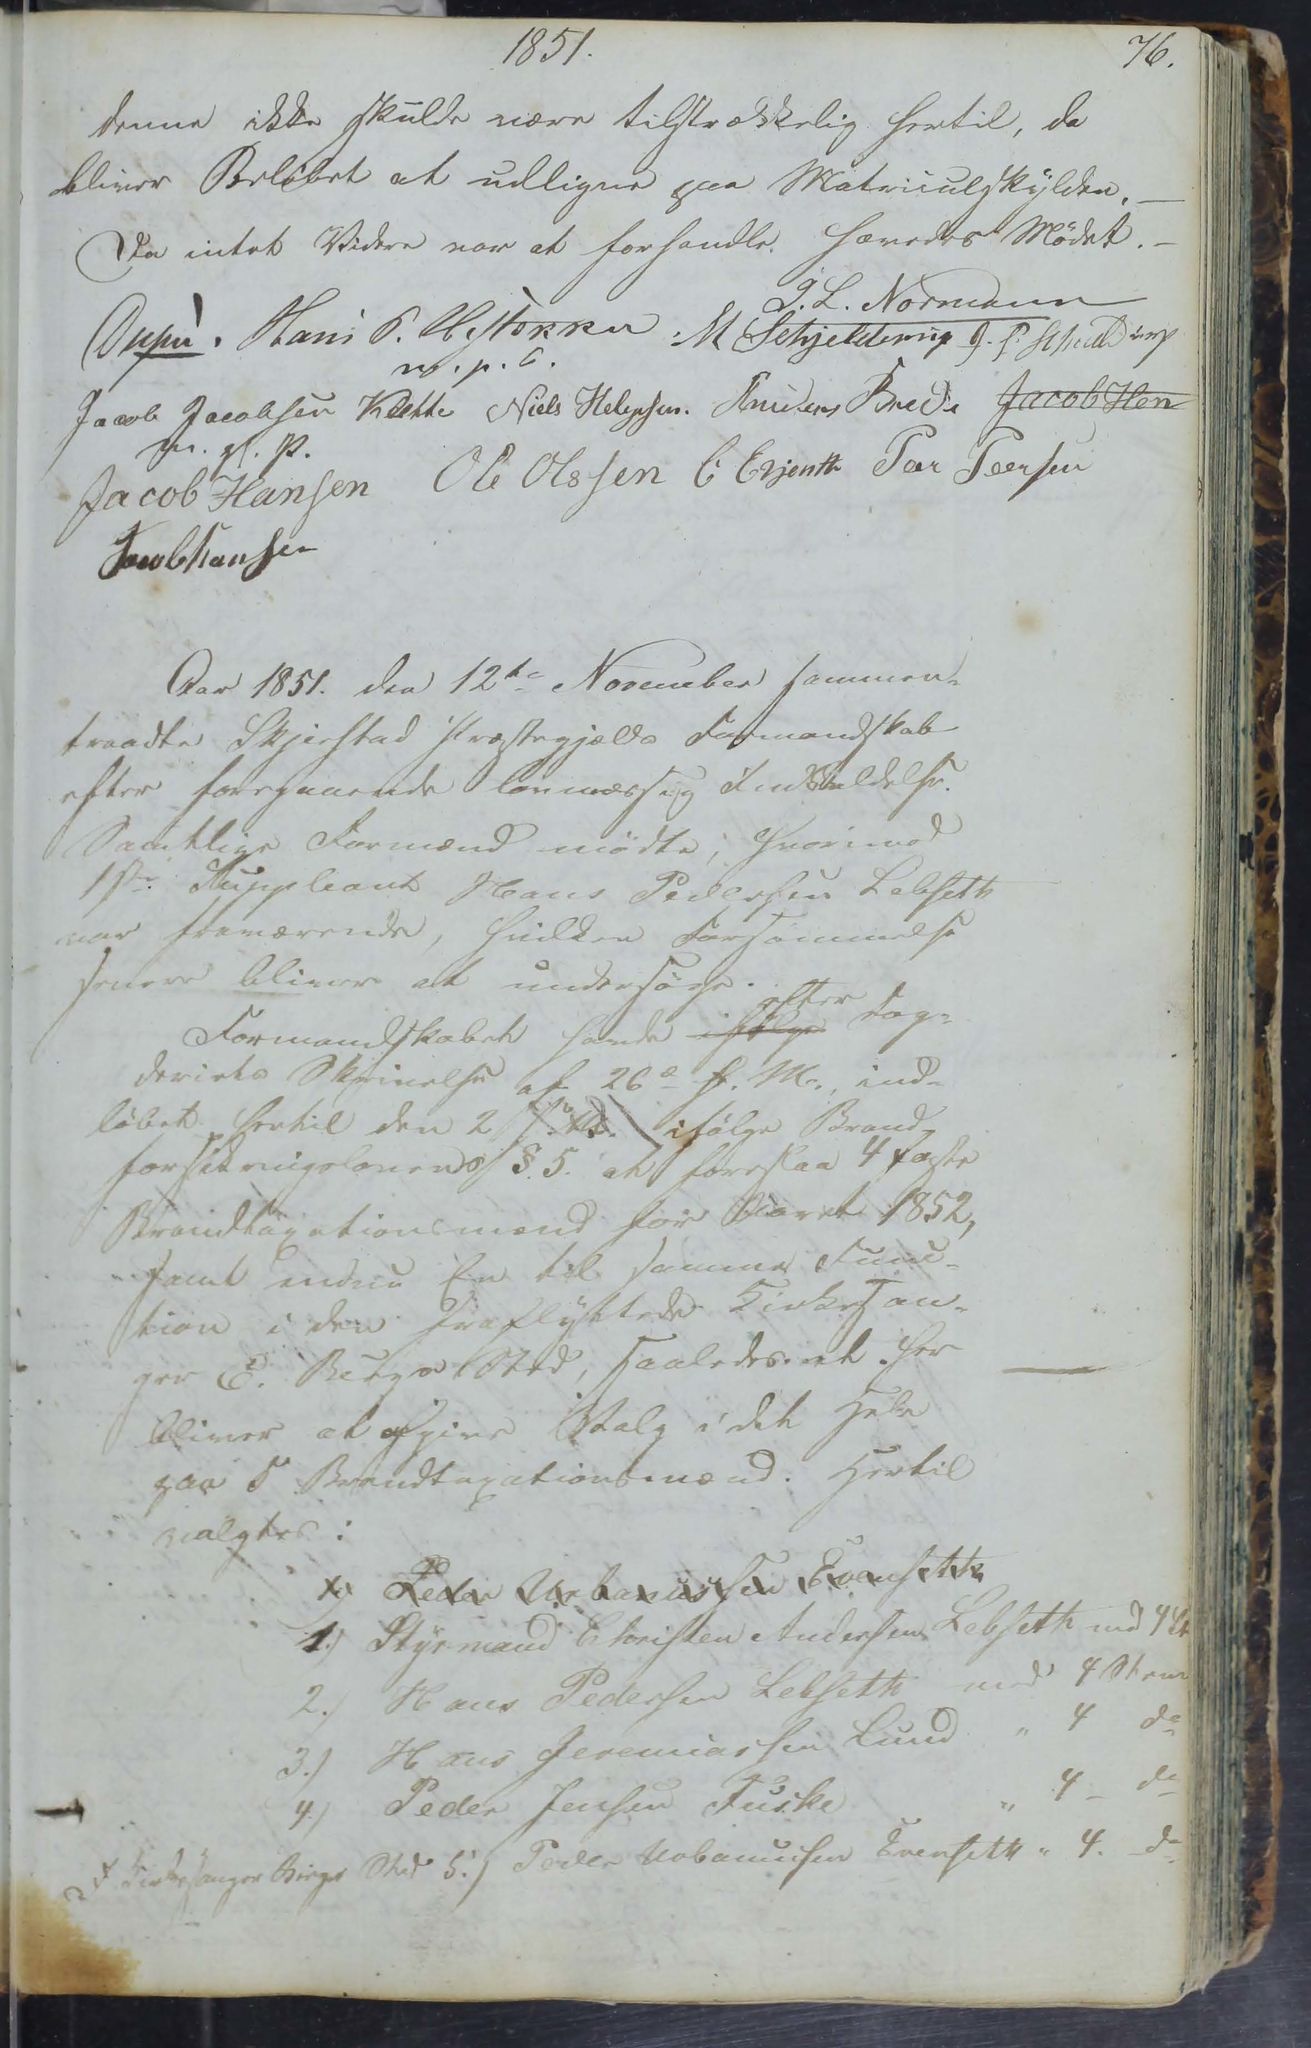 1851.
76.
denne ikke skulde være tilstrækkelig hertil, da
bliver Beløbet at udligne paa Matriculskylden. —
Da intet Videre var at forhandle hævedes Mødet. —
J. L. Normann
Hans P. M Schjelderup
m. p. P.
Jacob Jacobsen Klætte Niels Helgesen. Knudsen Bredi Jacob Han
m. p. P.
Jacob Hansen Ole Olssen C Evjenth Peer Peersen
Jacob Hansen
Aar 1851. den 12te November sammen-
traadte Skjerstad Præstegjælds Formandskab
efter foregaaende lovmæssig Indkaldelse.
Samtlige Formænd mødte; hvorimod
1ste Suppleant Hans Pedersen Lebseth
var fraværende, hvilken Forsømmelse
senere bliver at undersøge.
Formandskabet havde ifølge efter Fog-
deriets Skrivelse af 26de f. M., ind-
løbet hertil den 2 ds. M. ifølge Brand-
forsikringslovens § 5. at foreslaa 4 faste
Brandtaxationsmænd for Aaret 1852,
samt endnu En til samme Func-
tion i den fraflyttede Kirkesan-
ger E. Bergs Sted, saaledes at her
bliver at afgive Valg i det Hele
paa 5 Brandtaxationsmænd. Hertil
valgtes:
1) Peder Urbanussen Evenseth
1.) Styrmand Christen Andersen Lebseth med 4 St
2.) Hans Pedersen Lebseth med 4 Stem
3.) Hans Jeremiassen Lund " 4 do
4.) Peder Jensen Fuske " 4 - do
I Kirkesanger Bergs Sted 5.) Peder Urbanussen Evenseth " 4. do